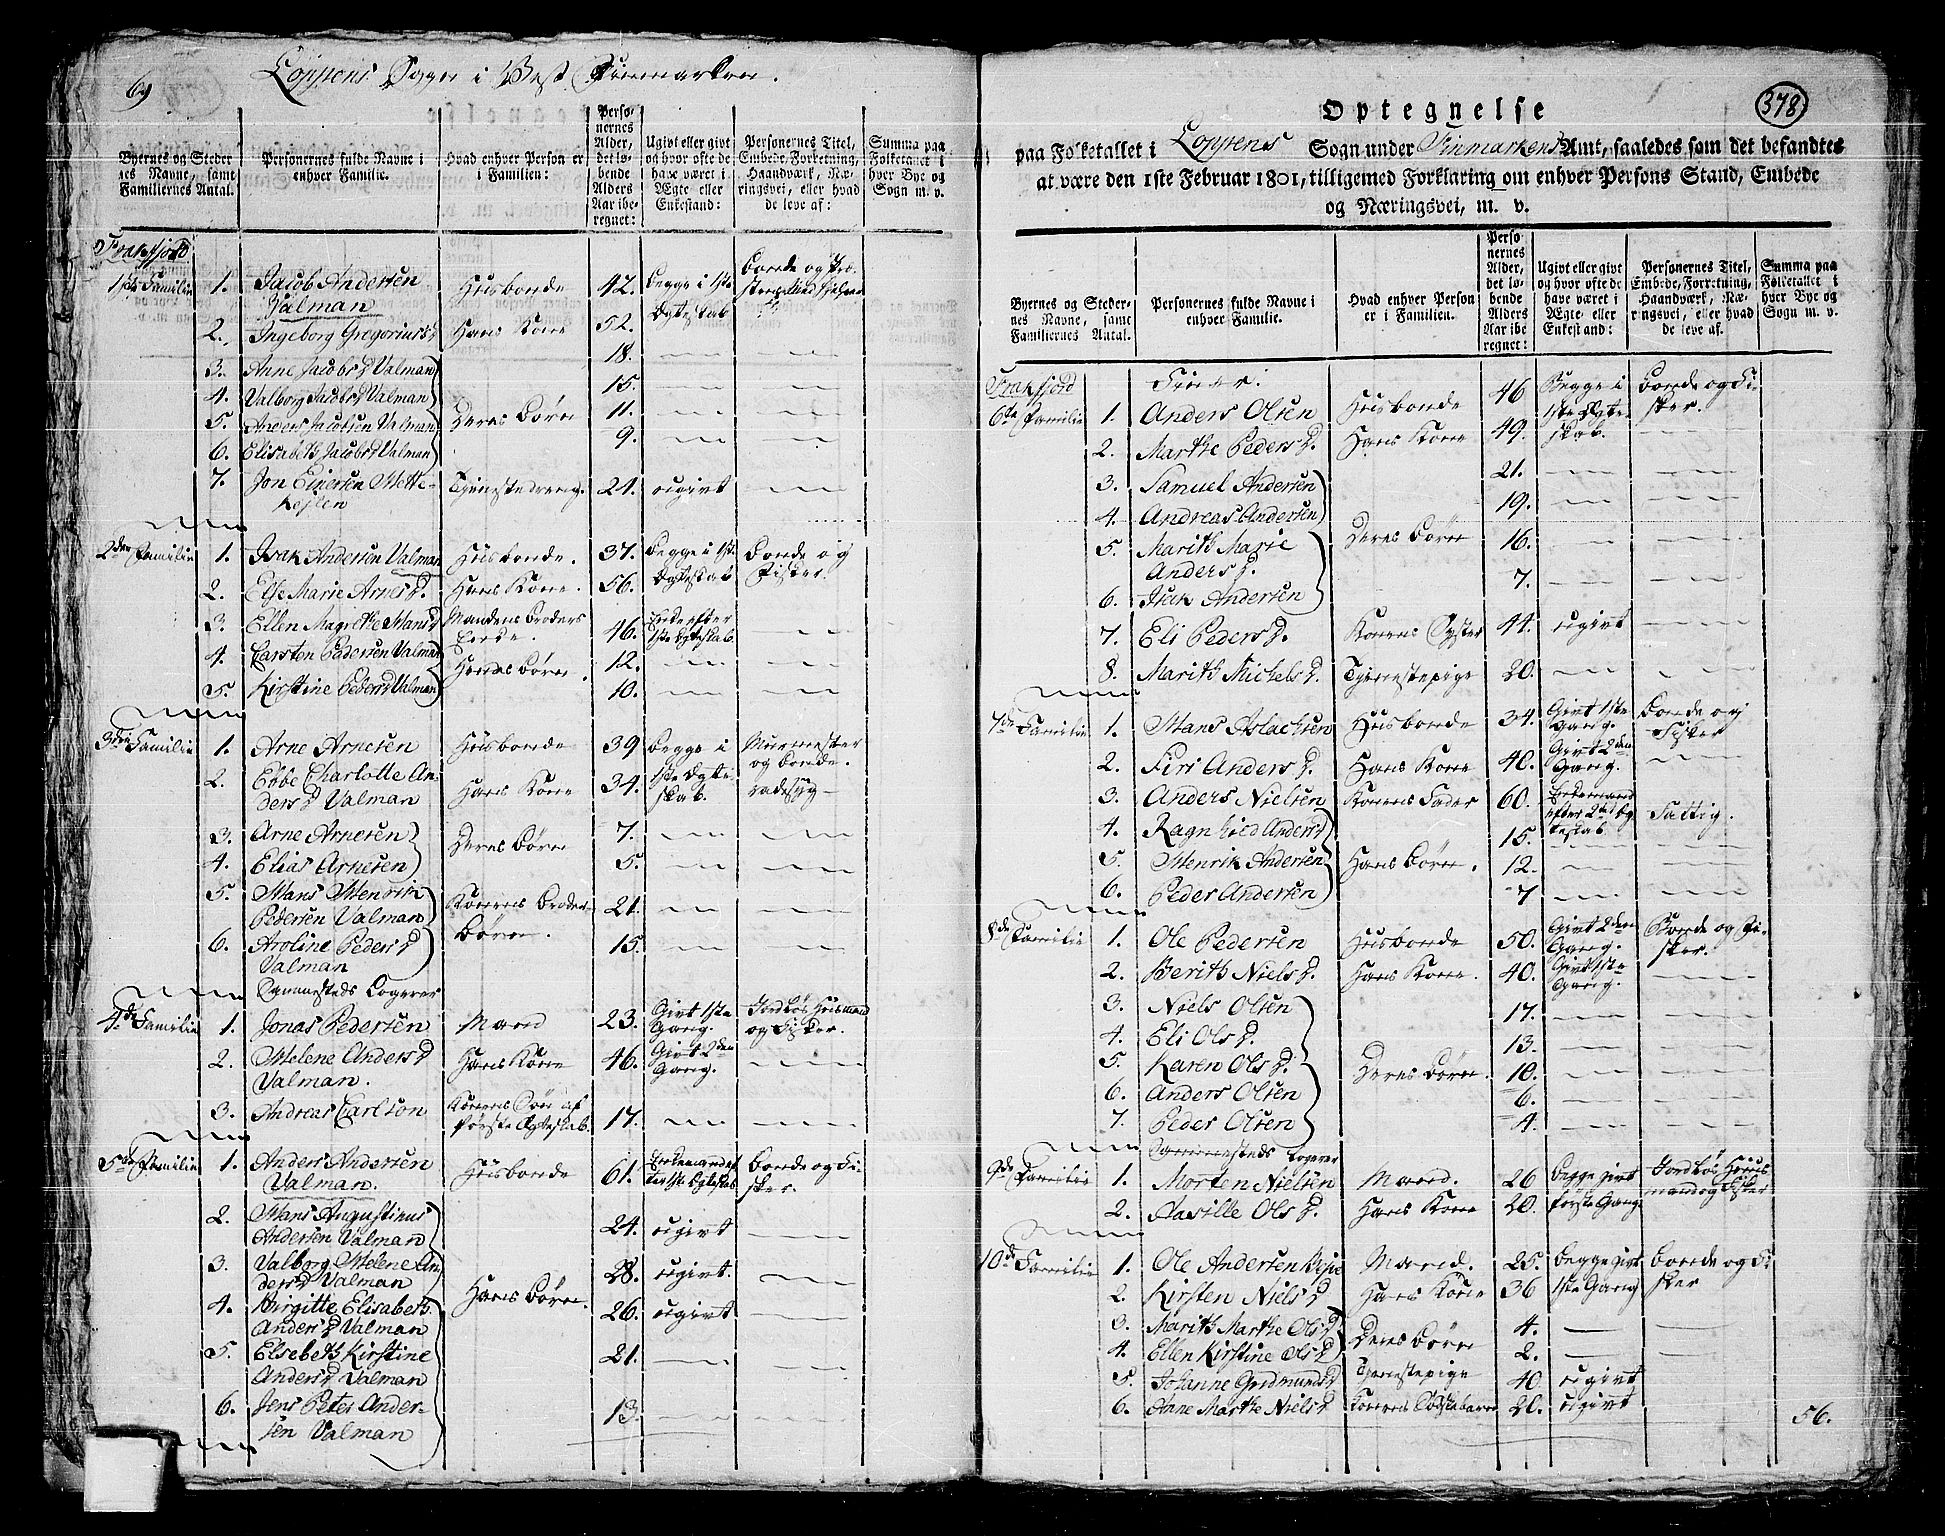 69
Loppens Sogn i Vest Finmarken.
Byernes og Steder
nes Navne, samt
Familiernes Antal.
Personernes fulde Navne i
enhver Familie.
Hvad enhver Person er
i Familien:
Perso-
nernes
Alder,
det lø-
bende
Alders
Aar ibe-
regnet:
Ugivt eller givt
og hvor ofte de
have været i
Ægte eller
Enkestand:
Personernes Titel,
Embede, Forretning,
Haandværk, Næ-
ringsvei, eller hvad
de leve af:
Summa paa
Folketallet i
hver Bye og
Sogn m. v.
Frakfjord
1ste Familie 1. Jacob Andersen Husbonde 42. begge i 1ste bonde og
Valman Ægteskab
2. Ingeborg Gregorius D. Hans Kone 52.
3. Anne Jacobs D Valman 18.
4. Valborg Jacobs D Valman 15.
5. Anders Jacobsen Valman Deres Børn 11.
6. Elisabeth Jacobs D Valman 9.
7. Jon Einersen Mette- Tjenestedreng. 21. ugivt
kejlen
2den Familie 1. Isak Andersen Valman Husbonde. 37. begge i 1ste bonde og
2. Else Marie Arnes D. Hans Kone. 56. Ægteskab Fisker.
3. Ellen Magrethe Hans D Mandens Broders 46. Enke efter
Enke. 1ste Ægteskab.
4. Carsten Pedersen Valman Hendes Børn. 12.
5. Kirstine Peders D Valman 10.
3die Familie 1. Arne Arnesen Husbonde 39 begge i Murmester
2. Ebbe Charlotte An- Hans Kone 34. 1ste Ægte- og bonde.
ders D Valman skab. radesyg
3. Arne Arnesen Deres Børn 7.
4. Elias Arnesen 5.
5. Hans Henrik Konens Broder- 21.
Pedersen Valman Børn.
6. Aroline Peders D 15.
Valman
Sammesteds Logerer
4de Familie 1. Jonas Pedersen Mand 23. Givt 1ste Jordløs Husmand
Gang. og Fisker.
2. Helene Anders D Hans Kone 46. Givt 2den
Valman. Gang.
3. Andreas Carlson Konens Søn af 17.
første Ægteskab.
5te Familie 1. Anders Andersen Husbonde 61. Enkemand ef- bonde og Fi-
Valman. ter 1ste Ægteskab sker.
2. Hans Augustinus 24. ugivt
Andersen Valman
3. Valborg Helene An- 28. ugivt.
ders D Valman
4. Birgitte Elisabeth Hans Børn. 26. ugivt
Anders D Valman
5. Elsebeth Kirstine 21.
Anders D Valman
6. Jens Peter Ander- 13.
sen Valman
378
Optegnelse
paa Folketallet i Loppens Sogn under Finmarkens Amt, saaledes som det befandtes
at være den 1ste Februar 1801, tilligemed Forklaring om enhver Persons Stand, Embede
og Næringsvei, m. v.
Byernes og Steder-
nes Navne, samt
Familiernes Antal.
Personernes fulde Navne i
enhver Familie.
Hvad enhver Person
er i Familien.
Perso-
nernes
Alder,
det lø-
bende
Alders
Aar ibe
regnet:
Ugivt eller givt
og hvor ofte de
have været i
Ægte eller
Enkestand:
Personernes Titel,
Embede, Forretning,
Haandværk, Næ-
ringsvei, eller hvad
de leve af.
Summa paa
Folketallet i
hver Bye og
Sogn m. v.
Frakfjord Finer.
6te Familie 1. Anders Olsen Husbonde 46 Begge i bonde og Fi-
2. Marthe Peders D. Hans Kone 49. 1ste Ægte sker.
skab.
3. Samuel Andersen 21.
4. Andreas Andersen 19.
5. Marith Marie Deres Børn 16.
Anders D.
6. Isak Andersen 7.
7. Eli Peders D. Konens Syster 44. ugivt
8. Marith Michels D. Tjenestepige 20.
7de Familie 1. Hans Aslachsen Husbonde 34. Givt 1ste Bonde og
Gang. Fisker
2. Siri Anders D. Hans Kone 40. Givt 2den
Gang.
3. Anders Nielsen Konens Fader 60. Enkemand
efter 2det Æg Fattig.
teskab
4. Ragnhild Anders D 15.
5. Henrik Andersen Hans Børn. 12.
6. Peder Andersen 7
8de Familie 1. Ole Pedersen Husbonde 50. Givt 2den Bonde og Fi-
Gang. sker.
2. Berith Niels D. Hans Kone. 40. Givt 1ste
Gang.
3. Niels Olsen 17.
4. Eli Ols D. 13.
5. Karen Ols D. Deres Børn. 10.
6. Anders Olsen 6.
7. Peder Olsen 4.
Sammesteds Logerer
9de Familie 1. Morten Nielsen Mand. 26 begge givt Jordløs Huus
2. Pasille Ols D. Hans Kone 20. første Gang mand og Fisker
10de Familie 1. Ole Andersen Mand. 25. begge givt bonde og Fi
2. Kirsten Niels D Hans Kone 36 1ste Gang sker
3. Marith Marthe Ols D Deres Børn 4.
4. Ellen Kirstine Ols D 2.
5. Johanne Gudmunds D Tjenestepige 40 ugivt
6. Anne Marthe Niels D Konens 20. ugivt
56.